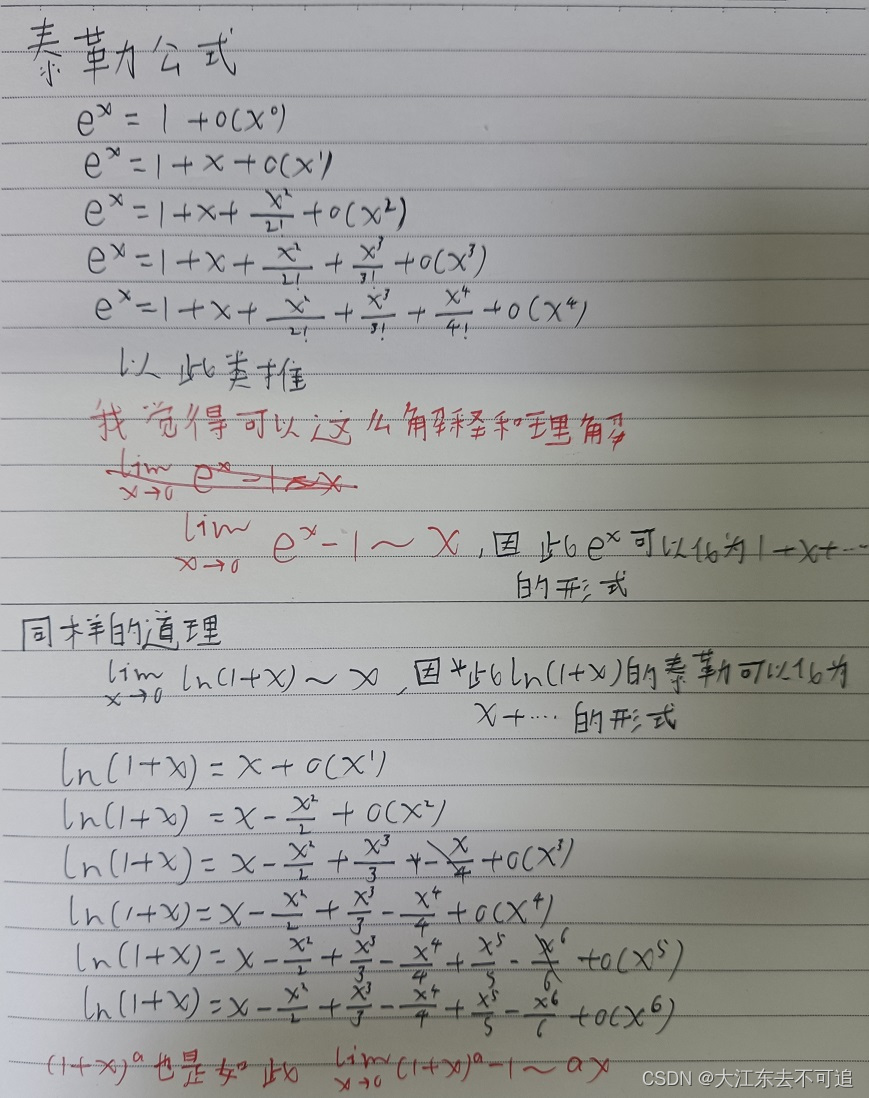 泰勒公式
e^x = 1 + o(x^0)
e^x = 1 + x + o(x^1)
e^x = 1 + x + x^2/2! + o(x^2)
e^x = 1 + x + x^2/2! + x^3/3! + o(x^3)
e^x = 1 + x + x^2/2! + x^3/3! + x^4/4! + o(x^4)
以此类推
我觉得可以这么解释和理解
lim x→0 e^x - 1 ~ x
lim x→0 e^x - 1 ~ x , 因此 e^x 可以化为 1 + x + …
的形式
同样的道理
lim x→0 ln(1+x) ~ x , 因此 ln(1+x) 的泰勒可以化为
x + … 的形式
ln(1+x) = x + o(x^1)
ln(1+x) = x - x^2/2 + o(x^2)
ln(1+x) = x - x^2/2 + x^3/3 - x/4 + o(x^3)
ln(1+x) = x - x^2/2 + x^3/3 - x^4/4 + o(x^4)
ln(1+x) = x - x^2/2 + x^3/3 - x^4/4 + x^5/5 - x^6/6 + o(x^5)
ln(1+x) = x - x^2/2 + x^3/3 - x^4/4 + x^5/5 - x^6/6 + o(x^6)
(1+x)^a 也是 lim x→0 (1+x)^a - 1 ~ ax
CSDN @大江东去不可追